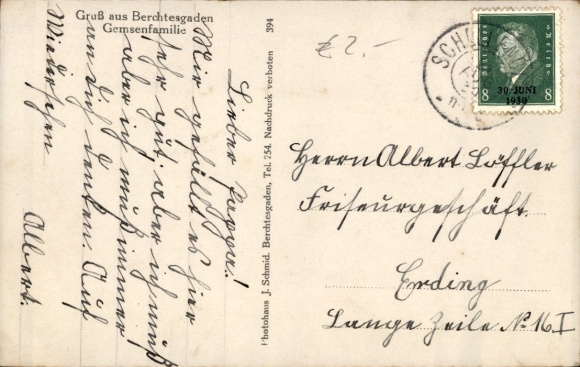 Gruß aus Berchtesgaden
Gemsenfamilie
Lieber Pappa!
Mir gefällt es hier
sehr gut. aber ich muß
aber ich muß immer
an dich denken. Auf
Wiedersehen
Albert.
Photohaus J. Schmid, Berchtesgaden, Tel. 254. Nachdruck verboten 394
£ 2.-
Deutsches Reich
30. JUNI
1930
8 8
Herrn Albert Löffler
Friseurgeschäft
Erding
Lange Zeile No 16 I